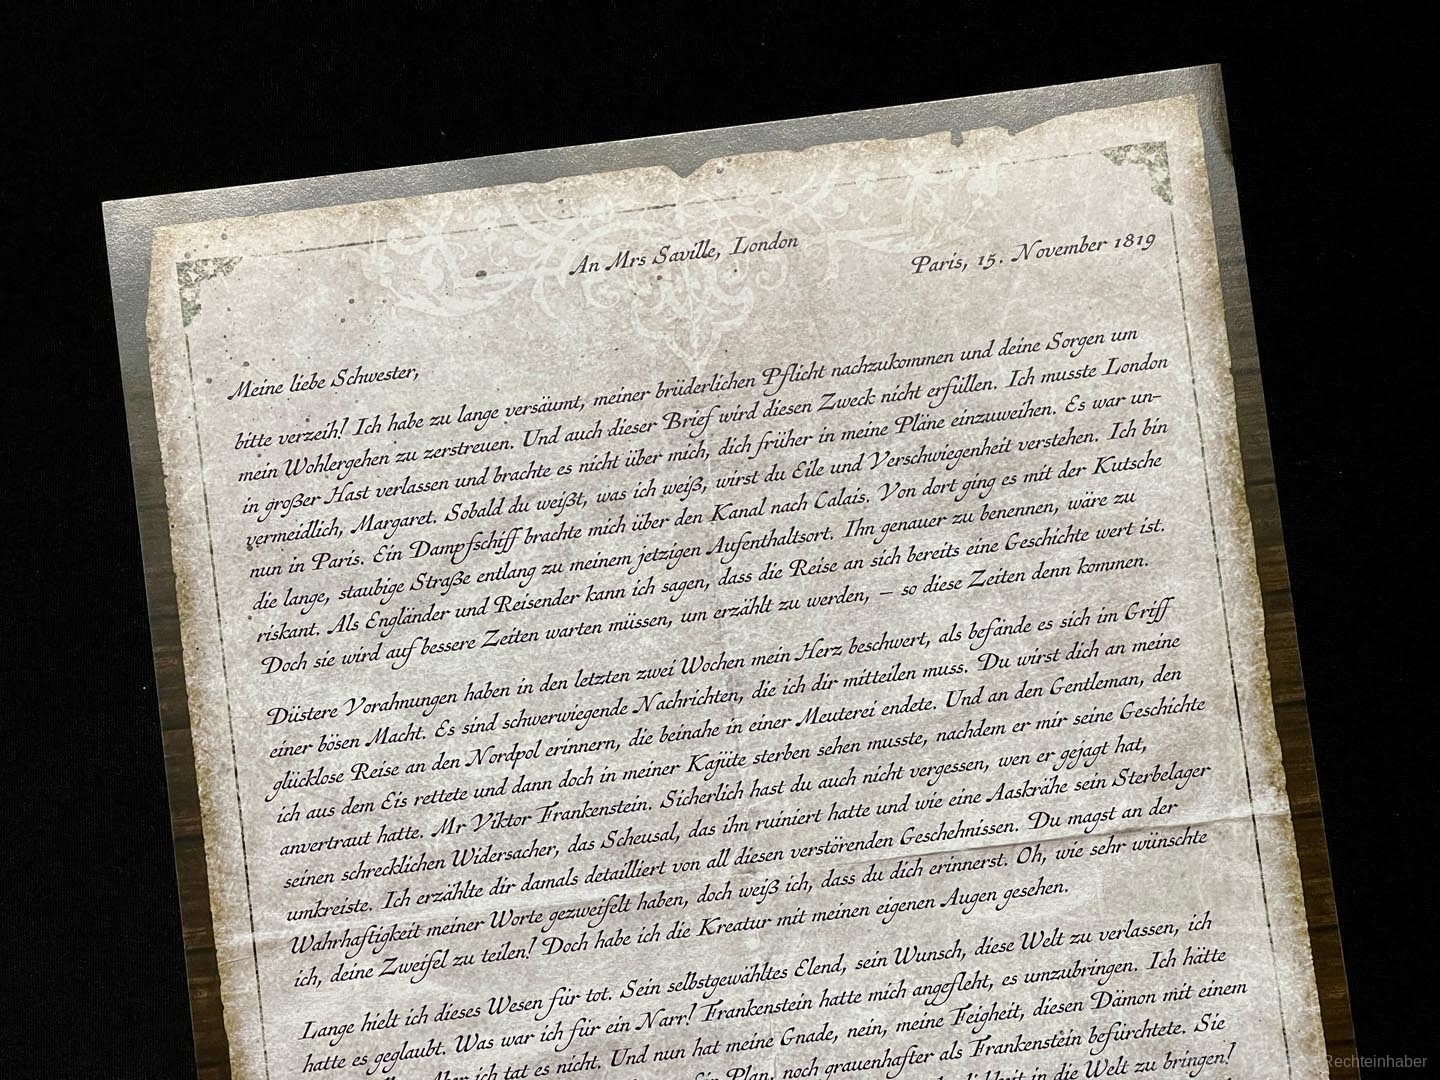 An Mrs Saville, London
Paris, 15. November 1819
Meine liebe Schwester,
bitte verzeih! Ich habe zu lange versäumt, meiner brüderlichen Pflicht nachzukommen und deine Sorgen um
mein Wohlergehen zu zerstreuen. Und auch dieser Brief wird diesen Zweck nicht erfüllen. Ich musste London
in großer Hast verlassen und brachte es nicht über mich, dich früher in meine Pläne einzuweihen. Es war un-
vermeidlich, Margaret. Sobald du weißt, was ich weiß, wirst du Eile und Verschwiegenheit verstehen. Ich bin
nun in Paris. Ein Dampfschiff brachte mich über den Kanal nach Calais. Von dort ging es mit der Kutsche
die lange, staubige Straße entlang zu meinem jetzigen Aufenthaltsort. Ihn genauer zu benennen, wäre zu
riskant. Als Engländer und Reisender kann ich sagen, dass die Reise an sich bereits eine Geschichte wert ist.
Doch sie wird auf bessere Zeiten warten müssen, um erzählt zu werden, – so diese Zeiten denn kommen.
Düstere Vorahnungen haben in den letzten zwei Wochen mein Herz beschwert, als befände es sich im Griff
einer bösen Macht. Es sind schwerwiegende Nachrichten, die ich dir mitteilen muss. Du wirst dich an meine
glücklose Reise an den Nordpol erinnern, die beinahe in einer Meuterei endete. Und an den Gentleman, den
ich aus dem Eis rettete und dann doch in meiner Kajüte sterben sehen musste, nachdem er mir seine Geschichte
anvertraut hatte. Mr Viktor Frankenstein. Sicherlich hast du auch nicht vergessen, wen er gejagt hat,
seinen schrecklichen Widersacher, das Scheusal, das ihn ruiniert hatte und wie eine Aaskrähe sein Sterbelager
umkreiste. Ich erzählte dir damals detailliert von all diesen verstörenden Geschehnissen. Du magst an der
Wahrhaftigkeit meiner Worte gezweifelt haben, doch weiß ich, dass du dich erinnerst. Oh, wie sehr wünschte
ich, deine Zweifel zu teilen! Doch habe ich die Kreatur mit meinen eigenen Augen gesehen.
Lange hielt ich dieses Wesen für tot. Sein selbstgewähltes Elend, sein Wunsch, diese Welt zu verlassen, ich
hatte es geglaubt. Was war ich für ein Narr! Frankenstein hatte mich angefleht, es umzubringen. Ich hätte
Aber ich tat es nicht. Und nun hat meine Gnade, nein, meine Feigheit, diesen Dämon mit einem
Plan, noch grauenhafter als Frankenstein befürchtete. Sie
in die Welt zu bringen!
Rechteinhaber